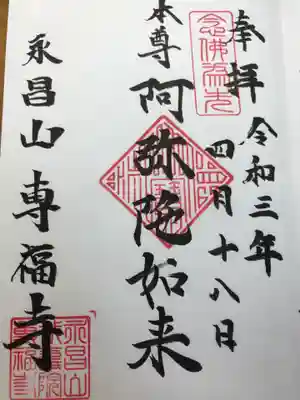 奉拝
令和三年
四月十八日
念佛為先
本尊
阿弥陀如来
永昌山専福寺